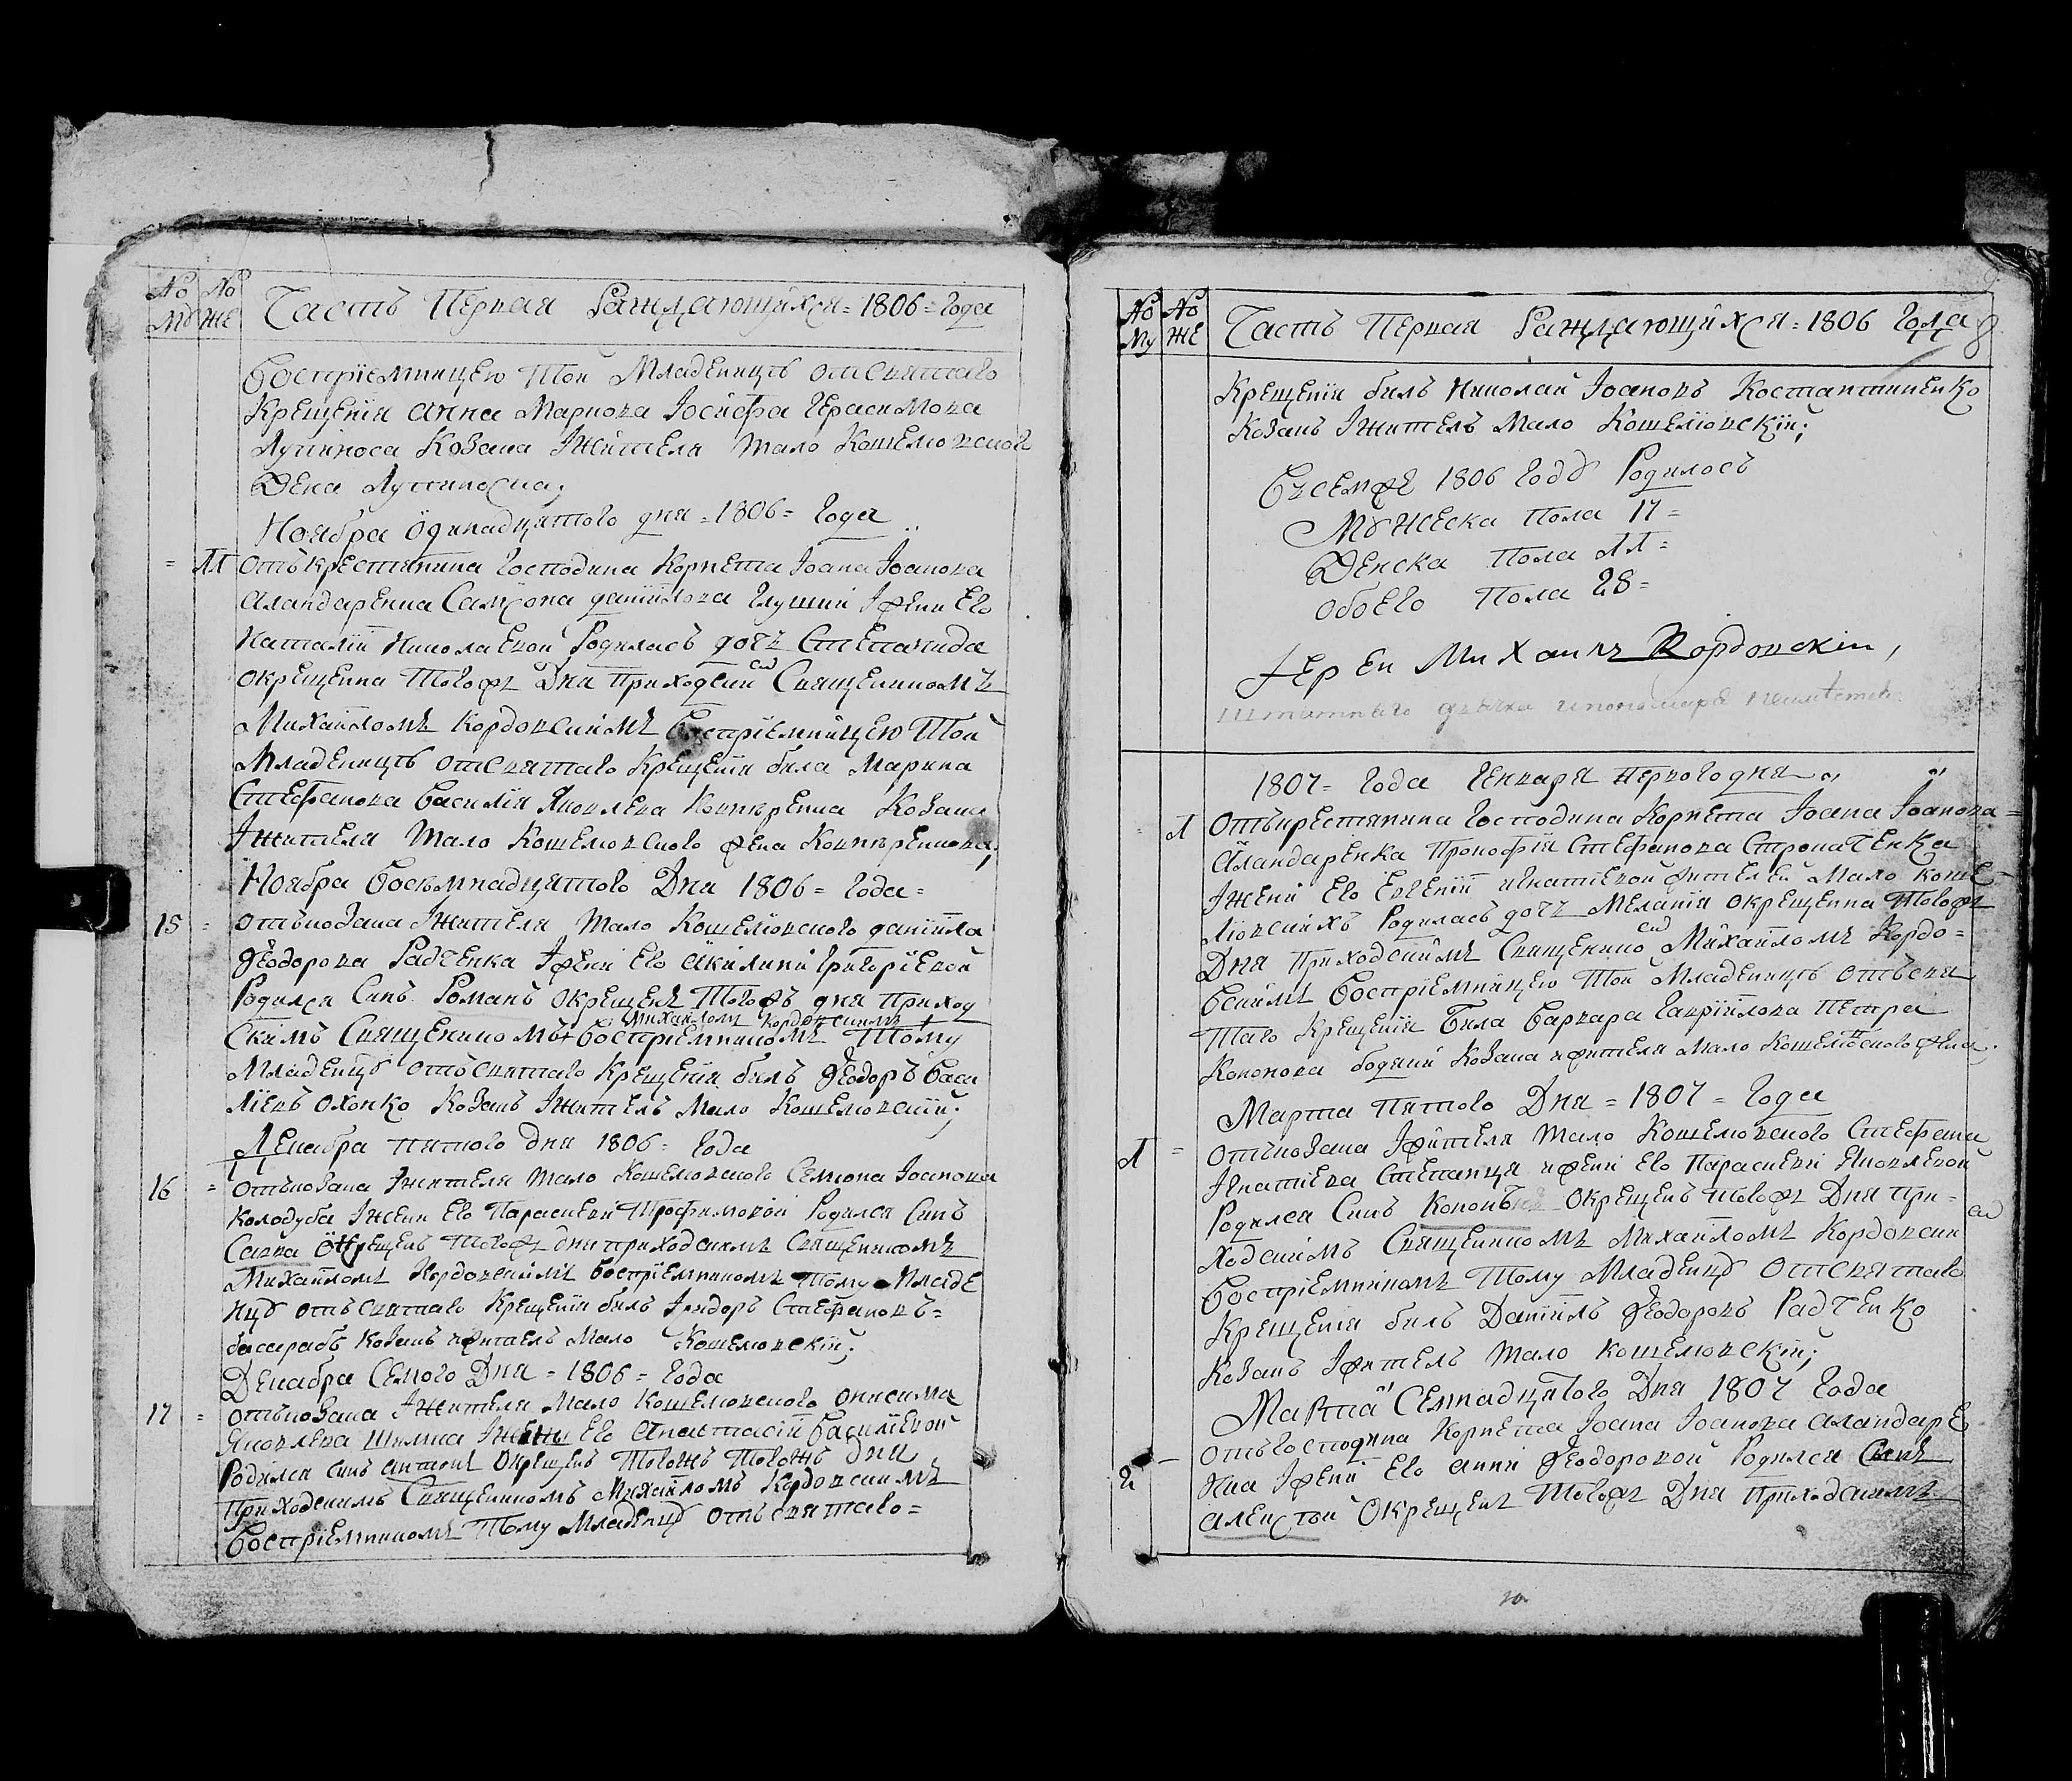 № №
Му Же
Часть Первая Раждающихся = 1806 = Года
Восприемницею Той Младеницѣ отсвятаго
Крещенія Анна Маркова Іосифа Герасимова
Козака Іжителя Мало Кошелювского
Жена
Ноября одинадцятого дня = 1806 = Года
= 11 Отъкрестянина Господина Корнета Іоана Іоанова
Аландаренка Самсона даніилова Глушки Іжени Его
Наталіи Николаевой Родиласъ дочъ Степанида
окрещенна Тогожъ Дня Приходским Священникомъ
Михаиломъ Кордовскимъ Восприемницею Той
Младеницѣ отсвятаго Крещенія била Марина
Стефанова Василія Яковлева Козака
Іжителя Мало Кошелювского жена
Ноября восемнадцятого Дня 1806 = Года =
15 = отъкозака Іжителя Мало Кошелювского даніила
Феодорова Радченка Іжени Его Акилини Григоріевой
Родился Синъ Романъ окрещенъ Тогожъ дня Приход
Михаиломъ Кордовскимъ
скимъ Священникомъ + Восприемникомъ Тому
Младенцу отъсвятаго Крещенія билъ Феодоръ Васи
ліевъ Охонко Козакъ Іжителъ Мало Кошелювскій;
Декабра пятого дня 1806 = Года
16 = отъкозака Іжителя Мало Кошелювского Семиона Іоанова
Колодуба Іжени Его Параскеви Трофимовой Родился Синъ
Савва Окрещенъ Тогожъ дня приходскимъ Священникомъ
Михаиломъ Кордовскимъ Восприемникомъ Тому Младе
нцу отъсвятаго Крещенія билъ Ісидоръ Стефановъ =
басарабъ Козакъ ижителъ Мало Кошелювскій;
Декабра Семого Дня = 1806 = Года
17 = отъкозака Іжителя Мало Кошелювского Онисима
Яковлева Іжены Его Анастасіи Василіевой
Родился синъ Антонъ Окрещенъ Тогожъ Тогожъ Дня
Приходскимъ Священникомъ Михаиломъ Кордовскимъ
Восприемникомъ Тому Младенцу отъсвятаго =
№ №
Му Же
Часть Первая Раждающихся = 1806 Года
8
Крещенія билъ Николай Іоановъ Костантиненко
Козакъ Іжителъ Мало Кошелювскій;
Въсемже 1806 Году Родилось
Мужеска Пола 17 =
Женска Пола 11 =
обоего Пола 28 =
Іерей Михаилъ Кордовскій,
Штатнаго дьячка ипономара
1807 = Года Генваря Первого дня
1 Отъкрестянина Господина Корнета Іоана Іоанова =
Аландаренка Прокофія Стефанова
Іжени Его Евгеніи игнатіевой жителей Мало Коше
лювскихъ Родиласъ дочъ Меланія окрещенна Тогожъ
Дня Приходскимъ Священико Михаиломъ Кордо =
вскимъ Восприемницею Той Младеницѣ отъсвя
таго Крещенія Била Варвара Гавріилова Петра
Кононова Козака ижителя Мало Кошелювского жена.
Марта Пятого Дня = 1807 = Года
1 = Отъкозака Іжителя Мало Кошелювского Стефана
Ігнатіева Степанця ижени Его Параскеви Яковлевой
Родился Синъ Кононъ Окрещенъ тогожъ Дня При =
ходскимъ Священникомъ Михаиломъ Кордовским
Восприемникомъ Тому Младенцу отсвятаго
Крещенія билъ Даніилъ Феодоровъ Радченко
Козакъ Іжителъ Мало Кошелювскій;
Марта Семнадцятого Дня 1807 Года
2 отъГосподина Корнета Іоана Іоанова Аландаре
нка Іжени Его Анни Феодоровой Родился Синъ
Алексѣй Окрещенъ Тогожъ Дня Приходскимъ